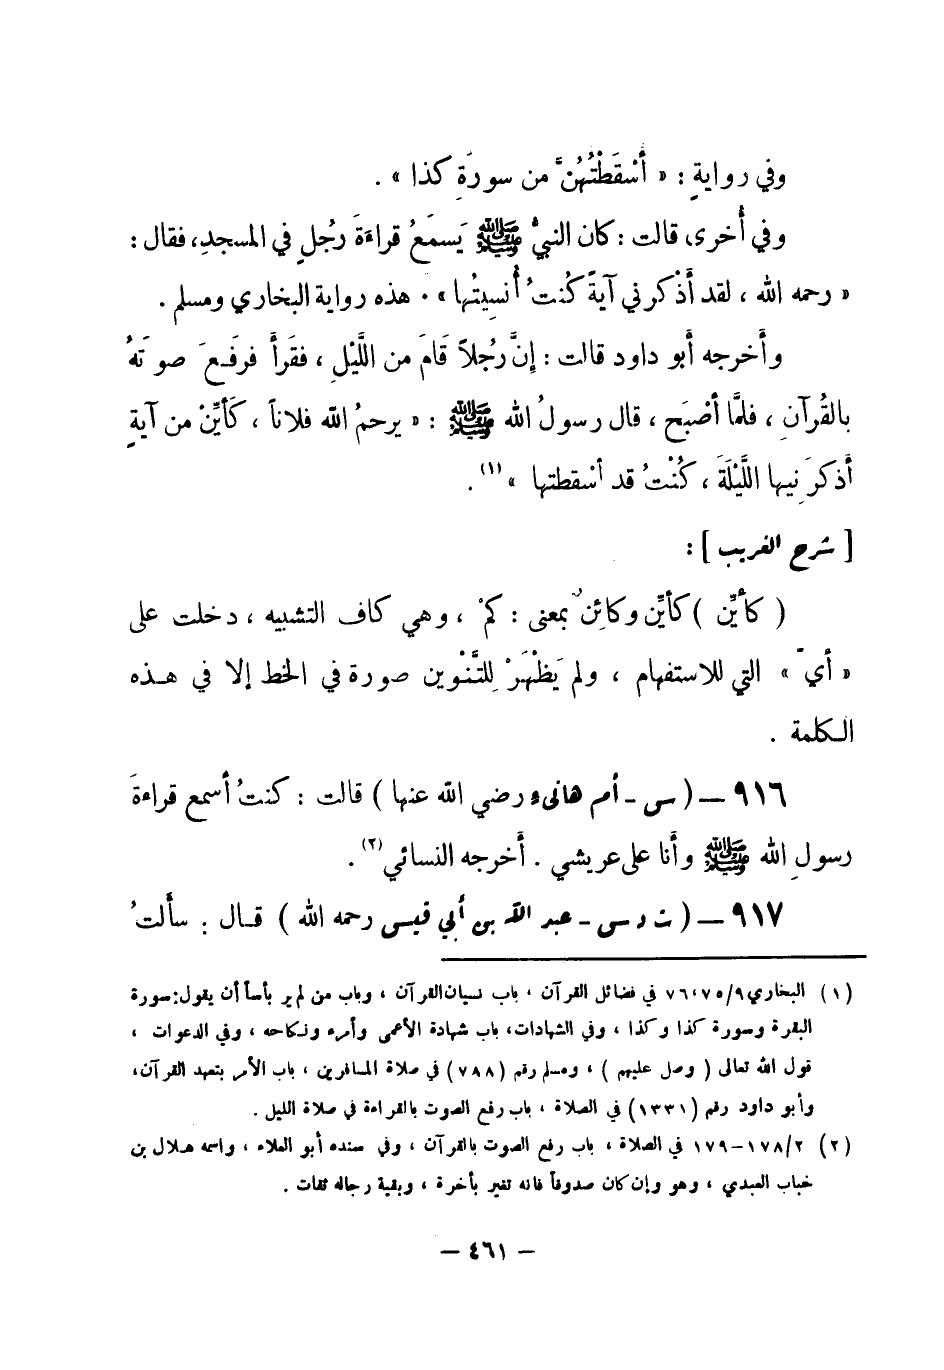 وفي روايةٍ : « أَسْقَطْتُهُنَّ من سورَةِ كذا » .
وفي أُخرى قالت : كان النبيُّ ﷺ يَسمَعُ قراءةَ رَجُلٍ في المسجدِ، فقال :
« رحمه الله ، لقد أَذْكرني آيةً كُنتُ أُنسِيتُها » . هذه رواية البخاري ومسلم .
وأَخرجه أَبو داود قالت : إنَّ رُجلاً قَامَ من اللَّيْلِ ، فقَرأَ فرفَعَ صوتَهُ
بالقُرآنِ ، فلمَّا أصْبَح ، قال رسولُ الله ﷺ : « يرحمُ الله فلاناً ، كَأَيِّنْ من آيةٍ
أَذكرَنِيها اللَّيْلَةَ ، كُنْتُ قد أسْقطتها » (١) .
[ شرح الغريب ] :
( كأَيِّن ) كأَيِّن وكائِنٌ بمعنى : كمْ ، وهي كاف التشبيه ، دخلت على
« أيّ » التي للاستفهام ، ولم يَظْهَرْ لِلتَّنْوين صورة في الخط إلا في هذه
الكلمة .
٩١٦ — ( س - أم هانىء رضي الله عنها ) قالت : كنتُ أسمع قراءةَ
رسولِ الله ﷺ وأَنا على عريشي . أَخرجه النسائي (٢) .
٩١٧ — ( ت د س - عبد الله بن أَبي قيس رحمه الله ) قال : سأَلتُ
(١) البخاري ٩/٧٥، ٧٦ في فضائل القرآن ، باب نسيان القرآن ، وباب من لم ير بأساً أن يقول : سورة
البقرة وسورة كذا وكذا ، وفي الشهادات، باب شهادة الأعمى وأمره ونكاحه ، وفي الدعوات ،
قول الله تعالى ( وصل عليهم ) ، ومسلم رقم (٧٨٨) في صلاة المسافرين ، باب الأمر بتعهد القرآن،
وأبو داود رقم (١٣٣١) في الصلاة ، باب رفع الصوت بالقراءة في صلاة الليل .
(٢) ٢/١٧٨-١٧٩ في الصلاة ، باب رفع الصوت بالقرآن ، وفي سنده أبو العلاء ، واسمه هلال بن
خباب العبدي ، وهو وإن كان صدوقاً فانه تغير بأخرة ، وبقية رجاله ثقات .
— ٤٦١ —